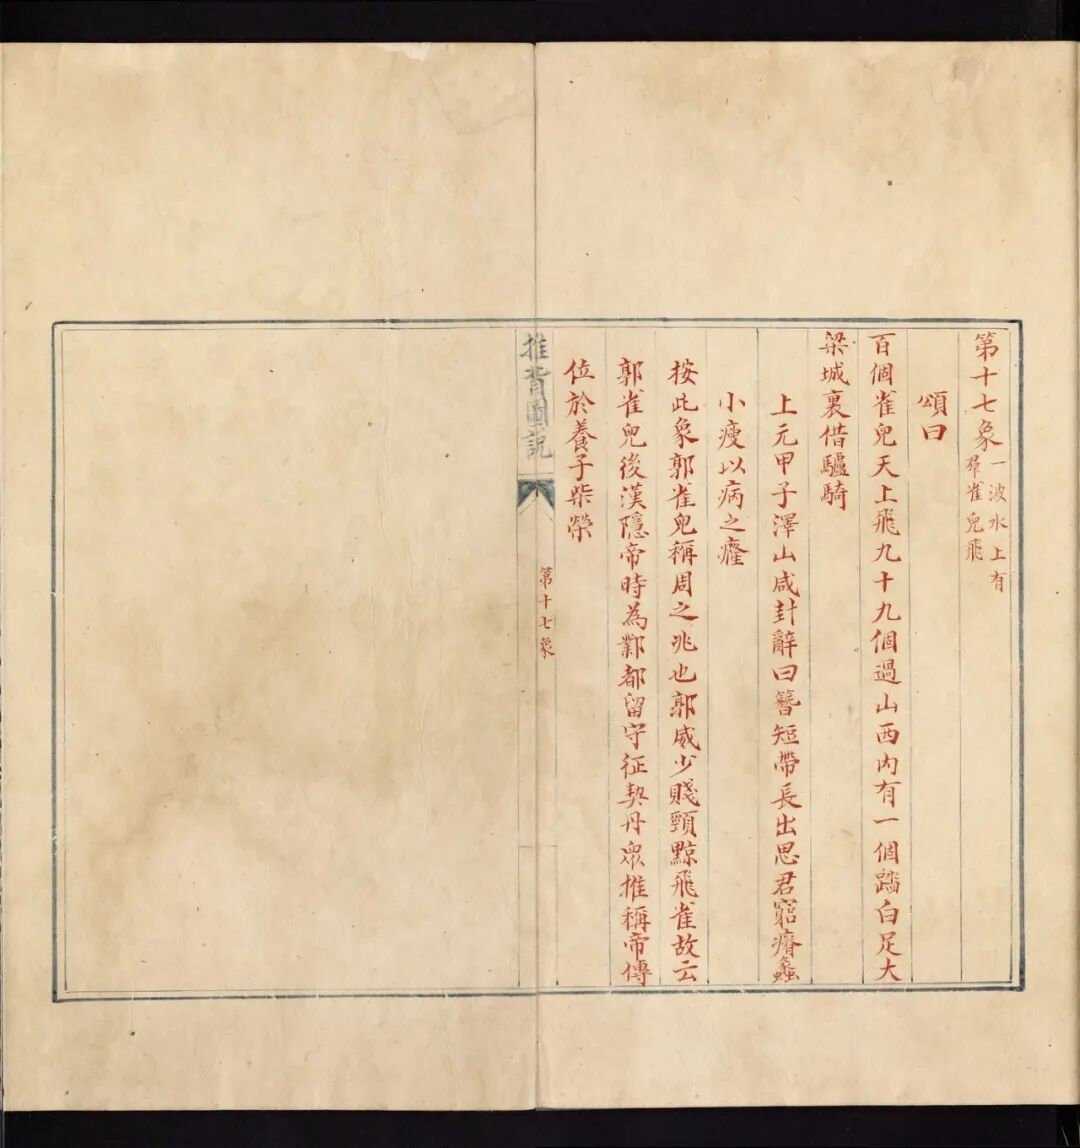 第十七象一波水上有
羣雀兒飛
頌曰
百個雀兒天上飛九十九個過山西內有一個踏白足大
梁城裏借驢騎
上元甲子澤山咸封辭曰簪短帶長出思君窮瘠蠡
小瘦以病之癃
按此象郭雀兒稱周之兆也郭威少賤頸黥飛雀故云
郭雀兒後漢隱帝時為鄴都留守征契丹眾推稱帝傳
位於養子柴榮
推背圖說
第十七象